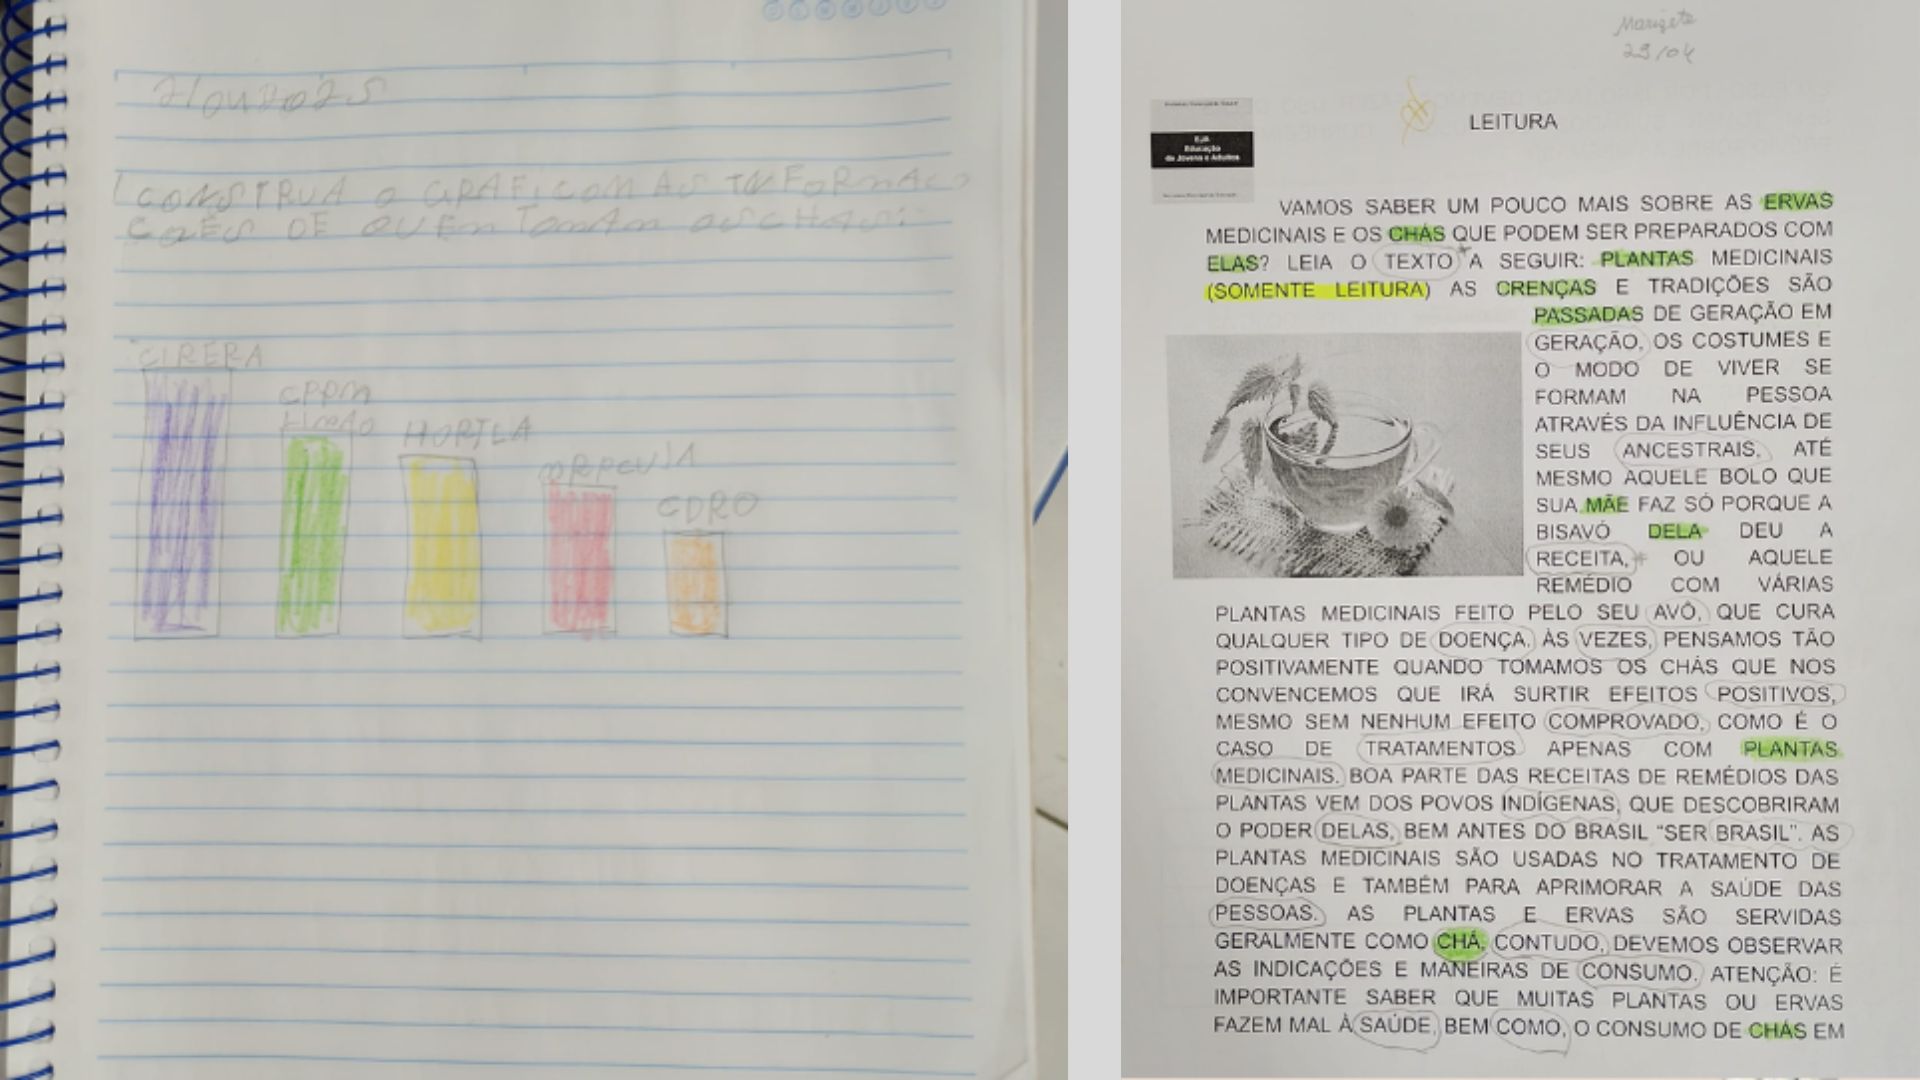 1 CONSTRUA O GRÁFICOM AS INFORMAÇO
COZÊS DE QUEM TOMAM OS CHAS:
CIRERA
CPPM
LIMÃO
HORTLA
CDRO
Marizete
23/04
EJA
Educação
de Jovens e Adultos
LEITURA
VAMOS SABER UM POUCO MAIS SOBRE AS ERVAS
MEDICINAIS E OS CHÁS QUE PODEM SER PREPARADOS COM
ELAS? LEIA O TEXTO A SEGUIR: PLANTAS MEDICINAIS
(SOMENTE LEITURA) AS CRENÇAS E TRADIÇÕES SÃO
PASSADAS DE GERAÇÃO EM
GERAÇÃO, OS COSTUMES E
O MODO DE VIVER SE
FORMAM NA PESSOA
ATRAVÉS DA INFLUÊNCIA DE
SEUS ANCESTRAIS, ATÉ
MESMO AQUELE BOLO QUE
SUA MÃE FAZ SÓ PORQUE A
BISAVÓ DELA DEU A
RECEITA, OU AQUELE
REMÉDIO COM VÁRIAS
PLANTAS MEDICINAIS FEITO PELO SEU AVÔ, QUE CURA
QUALQUER TIPO DE DOENÇA. ÀS VEZES, PENSAMOS TÃO
POSITIVAMENTE QUANDO TOMAMOS OS CHÁS QUE NOS
CONVENCEMOS QUE IRÁ SURTIR EFEITOS POSITIVOS,
MESMO SEM NENHUM EFEITO COMPROVADO, COMO É O
CASO DE TRATAMENTOS APENAS COM PLANTAS
MEDICINAIS. BOA PARTE DAS RECEITAS DE REMÉDIOS DAS
PLANTAS VEM DOS POVOS INDÍGENAS, QUE DESCOBRIRAM
O PODER DELAS, BEM ANTES DO BRASIL “SER BRASIL”. AS
PLANTAS MEDICINAIS SÃO USADAS NO TRATAMENTO DE
DOENÇAS E TAMBÉM PARA APRIMORAR A SAÚDE DAS
PESSOAS. AS PLANTAS E ERVAS SÃO SERVIDAS
GERALMENTE COMO CHÁ, CONTUDO, DEVEMOS OBSERVAR
AS INDICAÇÕES E MANEIRAS DE CONSUMO. ATENÇÃO: É
IMPORTANTE SABER QUE MUITAS PLANTAS OU ERVAS
FAZEM MAL À SAÚDE, BEM COMO, O CONSUMO DE CHÁS EM